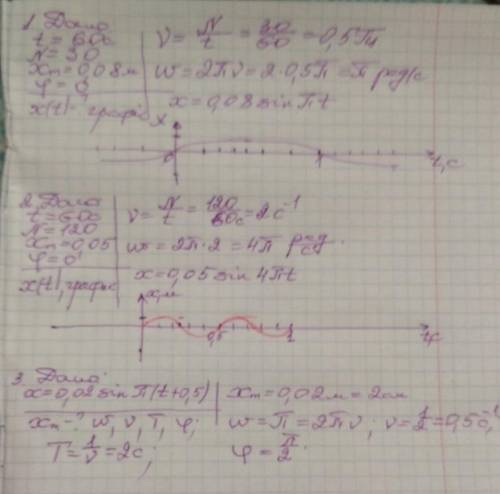 1. Дано
t = 60c
N = 30
xm = 0,08 м
φ = 0
x(t) - графік
ν = N/t = 30/60 = 0,5 Гц
w = 2πν = 2·0,5π = π рад/с
x = 0,08 sin πt
x
0
1
t, c
2. Дано
t = 60c
N = 120
xm = 0,05
φ = 0
x(t), графік
ν = N/t = 120/60c = 2 c⁻¹
w = 2π·2 = 4π рад/с.
x = 0,05 sin 4πt
x, м
0,5
1
t, c
3. Дано
x = 0,02 sin π(t+0,5)
xm - ? w, ν, T, φ;
T = 1/ν = 2c;
xm = 0,02 м = 2 см
w = π = 2πν; ν = 1/2 = 0,5 c⁻¹
φ = π/2.